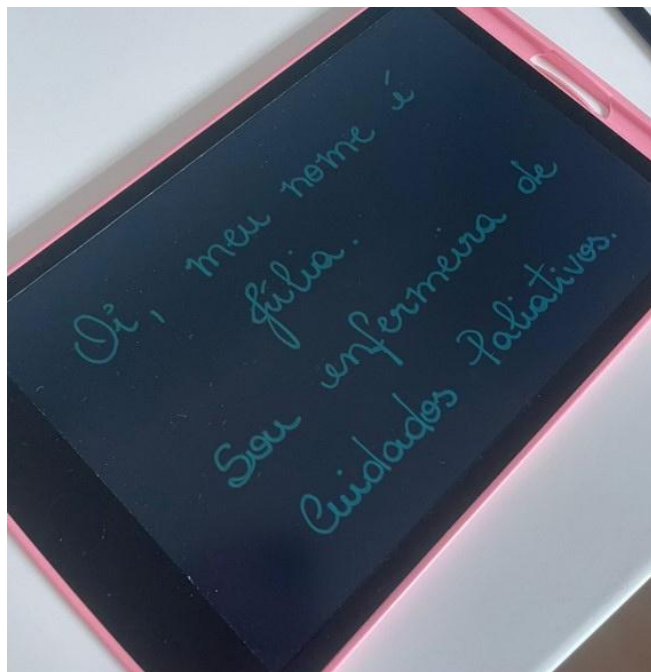 Oi, meu nome é
Júlia.
Sou enfermeira de
Cuidados Paliativos.